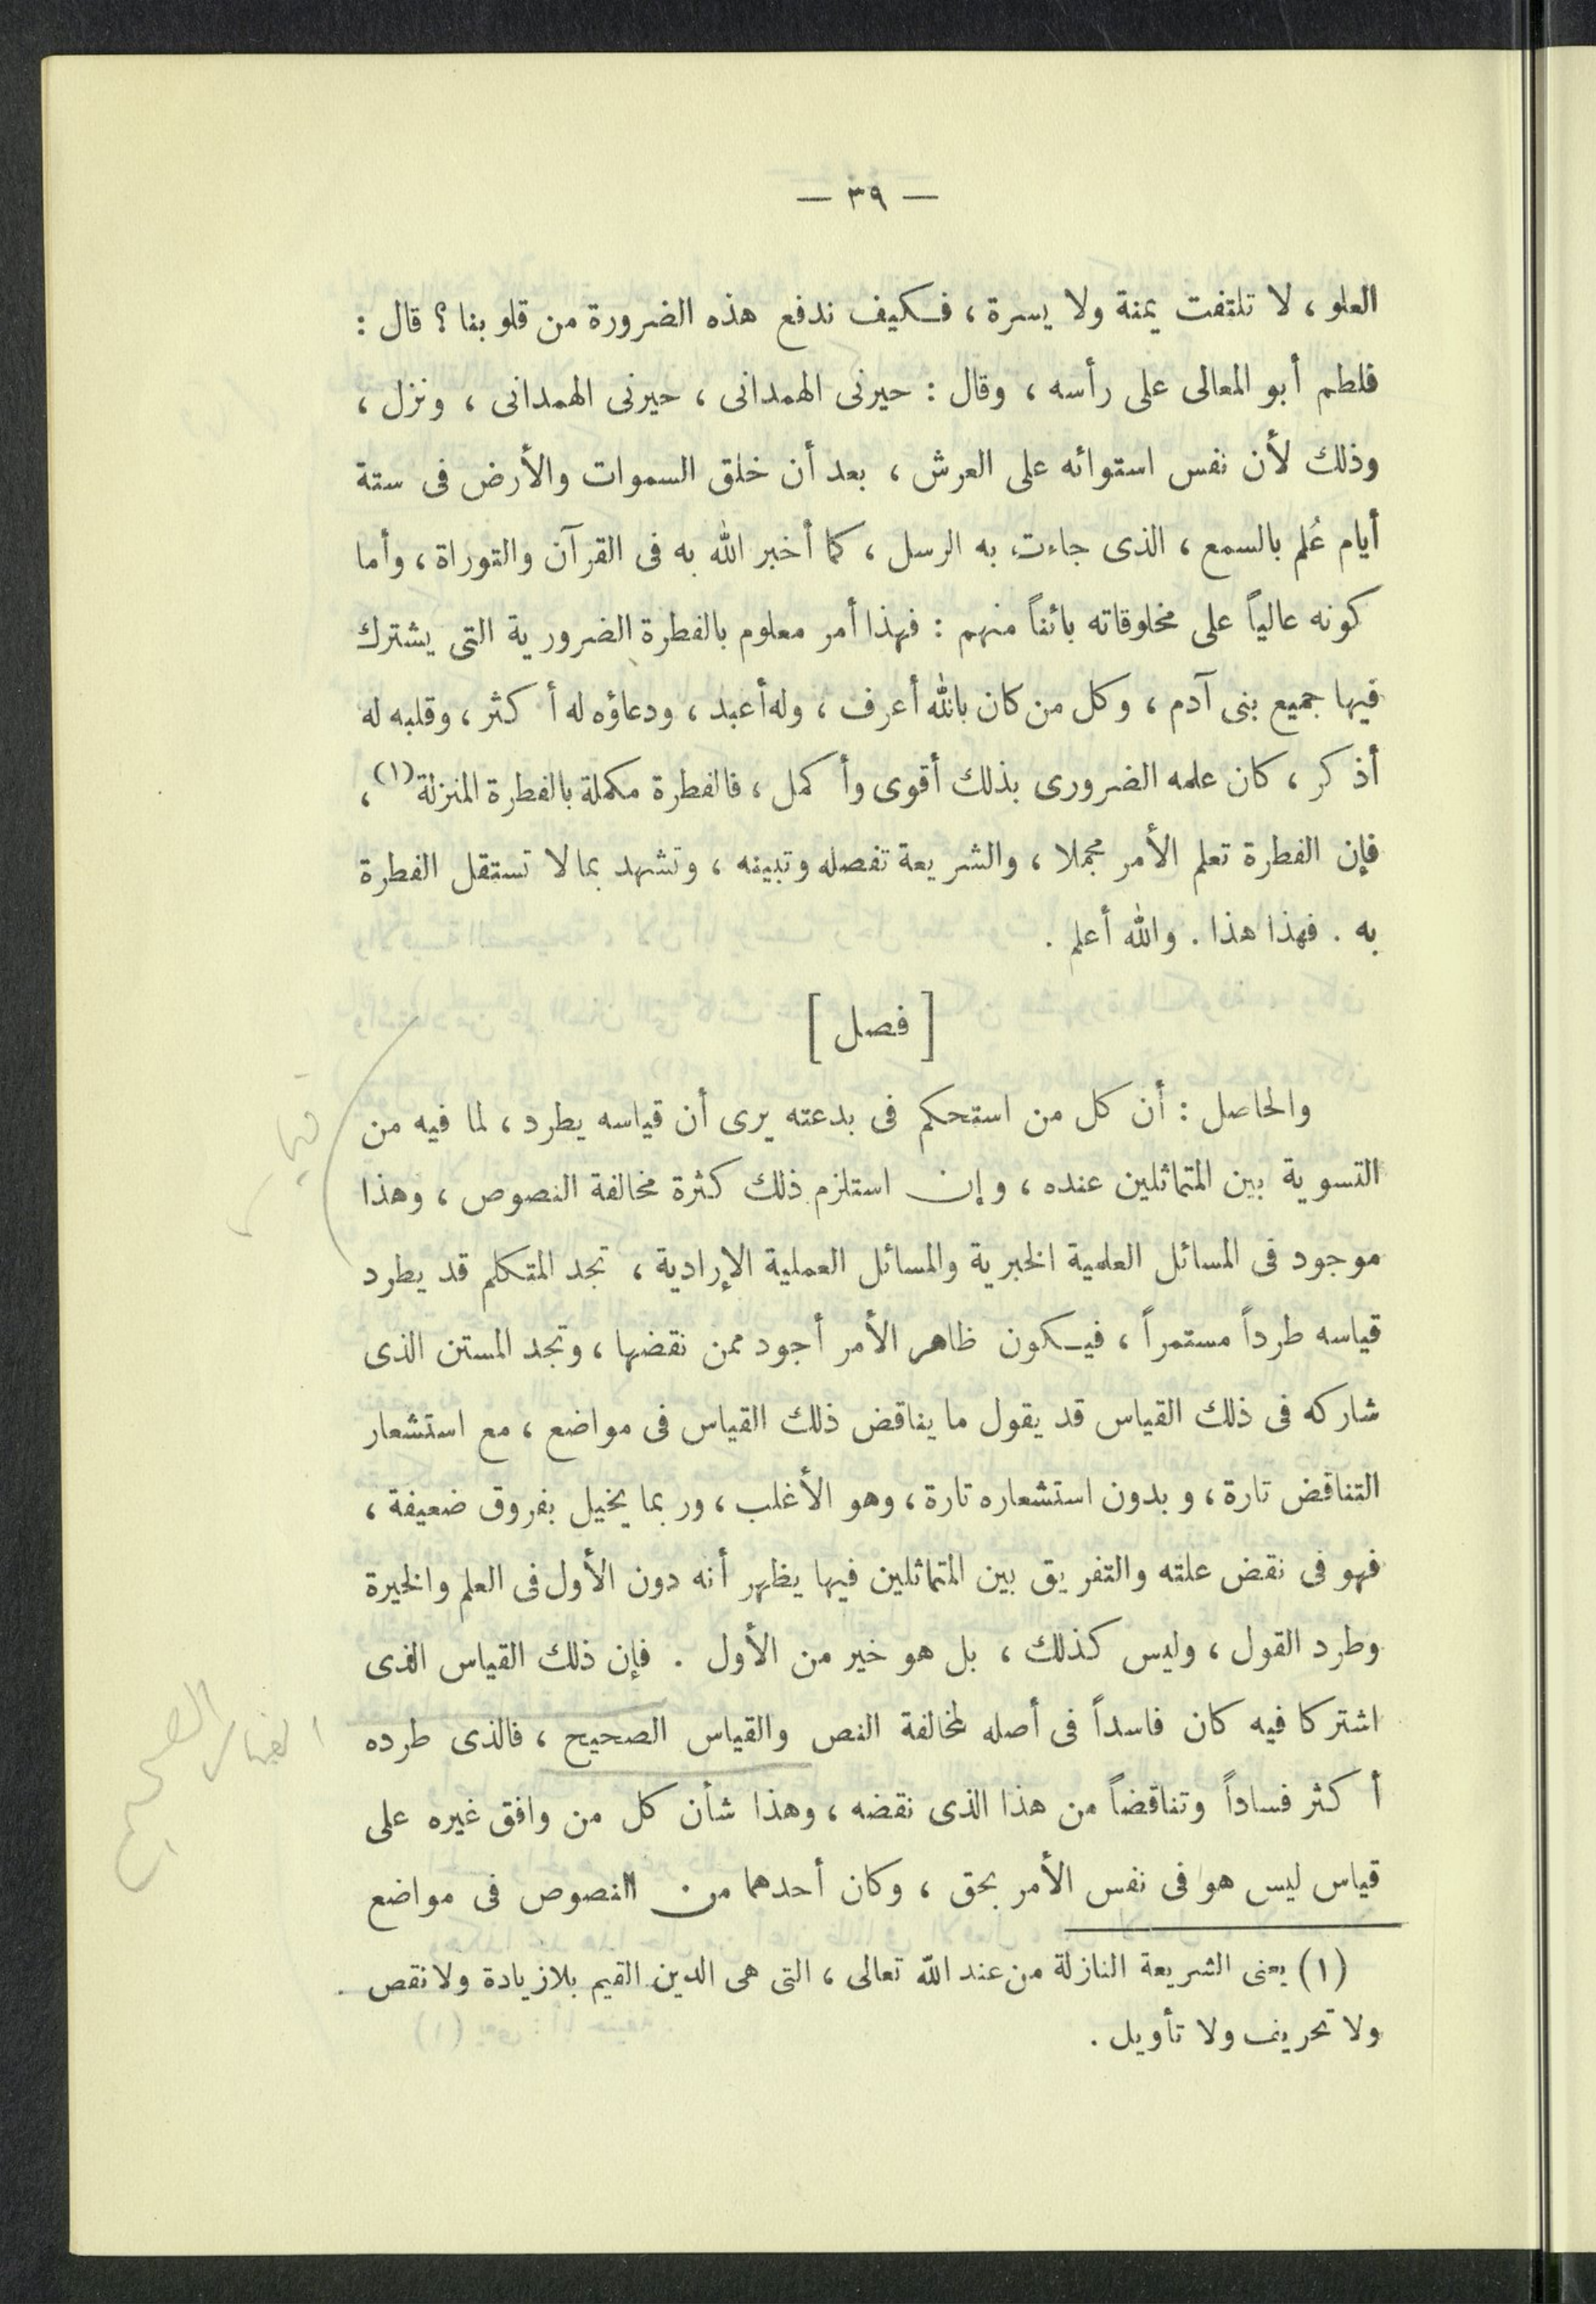 — ٣٩ —
العلو ، لا تلتفت يمنة ولا يسرة ، فكيف ندفع هذه الضرورة من قلوبنا ؟ قال :
فلطم أبو المعالى على رأسه ، وقال : حيرنى الهمدانى ، حيرنى الهمدانى ، ونزل ،
وذلك لأن نفس استوائه على العرش ، بعد أن خلق السموات والأرض فى ستة
أيام عُلم بالسمع ، الذى جاءت به الرسل ، كما أخبر الله به فى القرآن والتوراة ، وأما
كونه عالياً على مخلوقاته بائناً منهم : فهذا أمر معلوم بالفطرة الضرورية التى يشترك
فيها جميع بنى آدم ، وكل من كان بالله أعرف ، وله أعبد ، ودعاؤه له أكثر ، وقلبه له
أذكر ، كان علمه الضرورى بذلك أقوى وأكمل ، فالفطرة مكملة بالفطرة المنزلة (١) ،
فإن الفطرة تعلم الأمر مجملا ، والشريعة تفصله وتبينه ، وتشهد بما لا تستقل الفطرة
به . فهذا هذا . والله أعلم .
[ فصل ]
والحاصل : أن كل من استحكم فى بدعته يرى أن قياسه يطرد ، لما فيه من
التسوية بين المتماثلين عنده ، وإن استلزم ذلك كثرة مخالفة النصوص ، وهذا
موجود فى المسائل العلمية الخبرية والمسائل العملية الإرادية ، تجد المتكلم قد يطرد
قياسه طرداً مستمراً ، فيكون ظاهر الأمر أجود ممن نقضها ، وتجد المستن الذى
شاركه فى ذلك القياس قد يقول ما يناقض ذلك القياس فى مواضع ، مع استشعار
التناقض تارة ، وبدون استشعاره تارة ، وهو الأغلب ، وربما يخيل بفروق ضعيفة ،
فهو فى نقض علته والتفريق بين المتماثلين فيها يظهر أنه دون الأول فى العلم والخيرة
وطرد القول ، وليس كذلك ، بل هو خير من الأول . فإن ذلك القياس الذى
اشتركا فيه كان فاسداً فى أصله لمخالفة النص والقياس الصحيح ، فالذى طرده
أكثر فساداً وتناقضاً من هذا الذى نقضه ، وهذا شأن كل من وافق غيره على
قياس ليس هو فى نفس الأمر بحق ، وكان أحدهما من النصوص فى مواضع
(١) يعنى الشريعة النازلة من عند الله تعالى ، التى هى الدين القيم بلا زيادة ولا نقص
ولا تحريف ولا تأويل .
القياس الصحيح